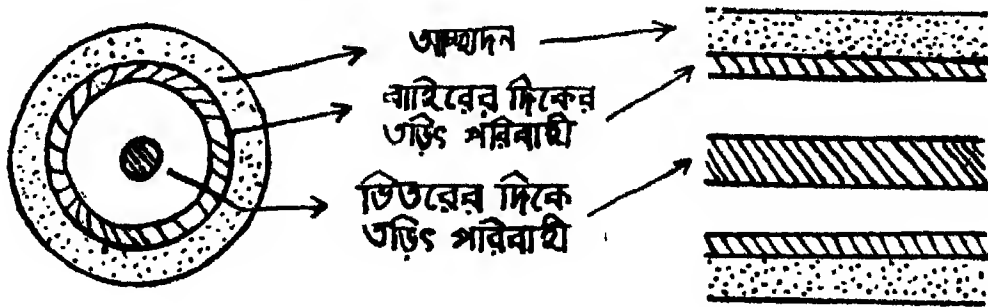 আচ্ছাদন
বাইরের দিকের
তড়িৎ পরিবাহী
ভিতরের দিকে
তড়িৎ পরিবাহী